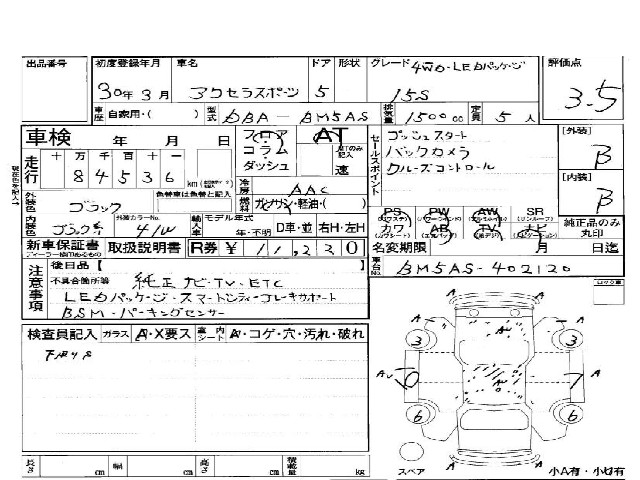 出品番号 初度登録年月 車名 ドア 形状 グレード 4WD・LEDパッケージ 評価点
30年3月 アクセラスポーツ 5 15S 3.5
車歴 自家用・( ) 型式 DBA-BM5AS 排気量 1500cc 定員 5人
車検 年 月 日 フロア コラム ダッシュ AT 速
走行 十万千百十一 84536 km
セールスポイント
プッシュスタート
バックカメラ
クルーズコントロール
[外装] B
[内装] B
外装色 ブラック 色替車は色替と記入 冷房 AAC
ガソリン・軽油・( )
内装色 ブラック系 外装カラーNo. 41W 輸入車 モデル年式 年・不明 D車・並 右H・左H
PS PW AW SR
カワ AB TV ナビ
純正品のみ丸印
新車保証書 取扱説明書 R券 ¥11,230 名変期限 月 日迄
注意事項 後日品【 】 車台No. BM5AS-402120
不具合箇所等 純正ナビ・TV・ETC
LEDパッケージ・スマートシティブレーキサポート
BSM・パーキングセンサー
ロック車
検査員記入 ガラス A・X要ス 内シート A・コゲ・穴・汚れ・破れ
下廻りS
A A
3 3
A
6 6
A A
長さ cm 幅 cm 高さ cm 積載量 kg
スペア 小A有・小U有